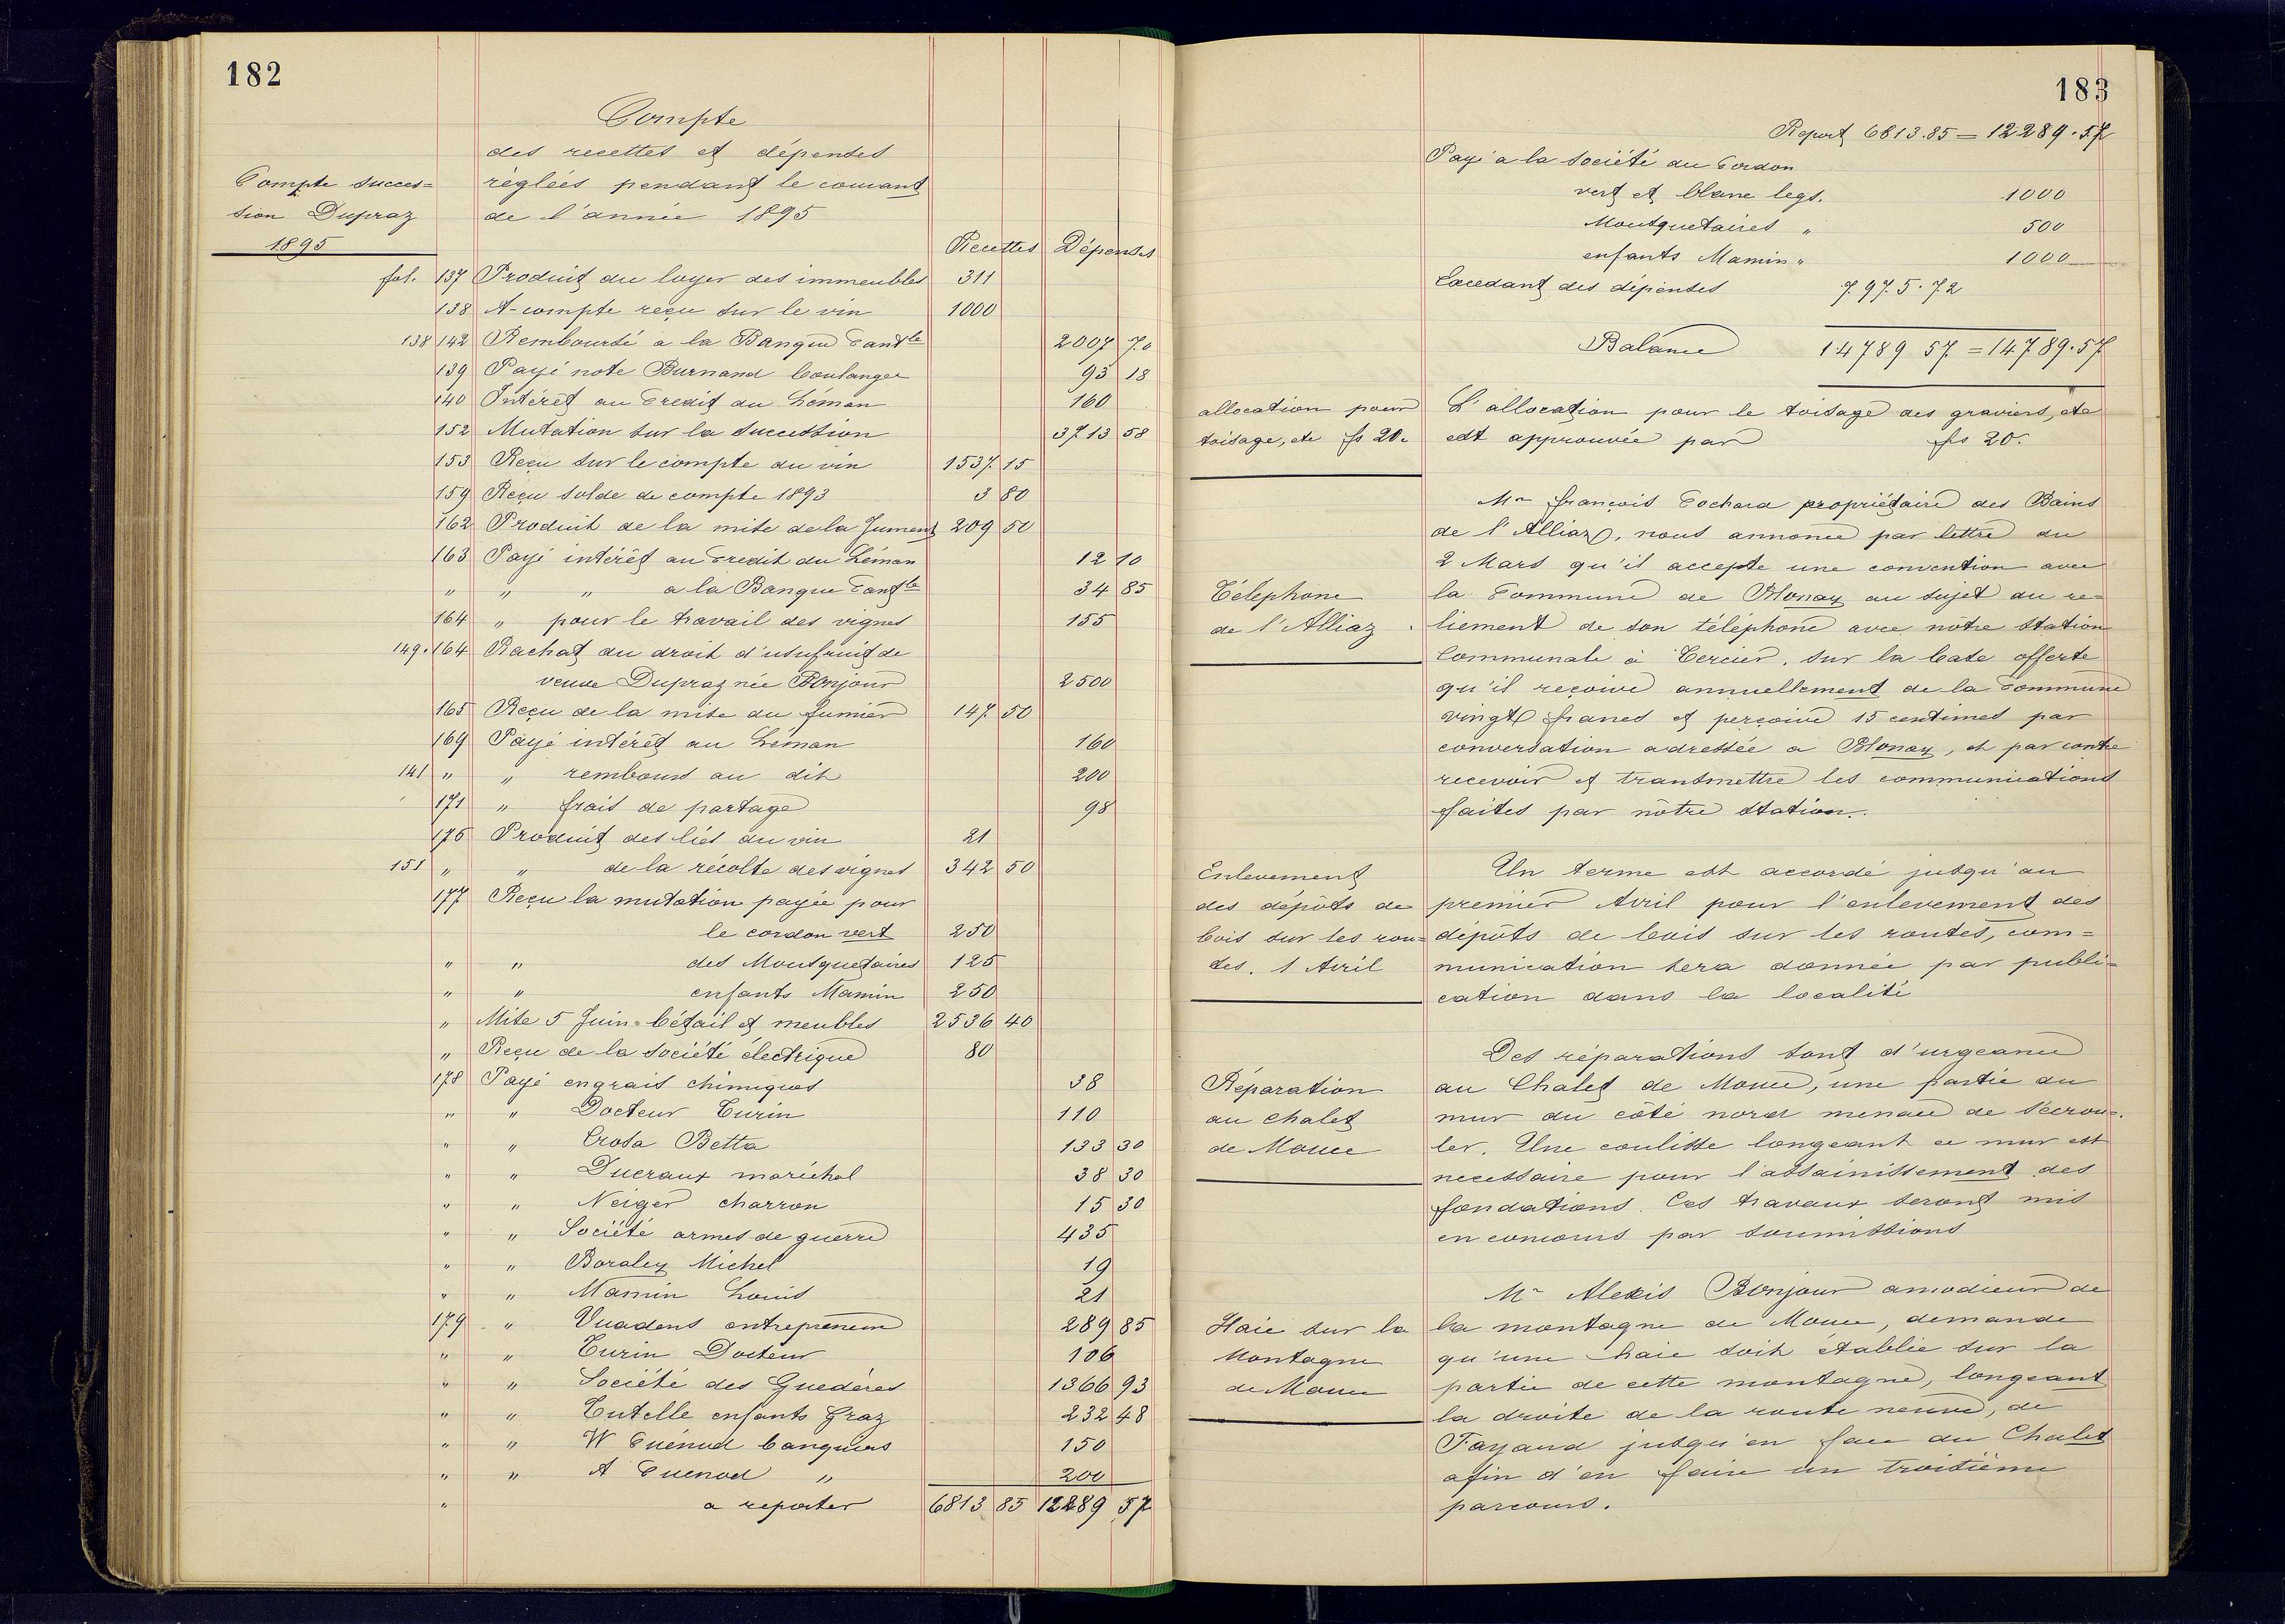 182
Compte
des recettes et dépenses
Compte succes=
réglées pendant le courant
sion Dupraz
de l'année 1895
1895
Recettes Dépenses
fol. 137 Produit du loyer des immeubles 311
138 A-compte reçu sur le vin 1000
138 142 Remboursé a la Banque Cantle 2007 70
139 Payé note Burnand boulanger 93 18
140 Intérêt au Credit du Léman 160
152 Mutation sur la succession 3713 58
153 Reçu sur le compte du vin 1537 15
159 Reçu solde de compte 1893 3 80
162 Produit de la mise de la Jument 209 50
163 Payé intérêt au Credit du Léman 12 10
" " " a la Banque Cantle 34 85
164 " pour le travail des vignes 155
149. 164 Rachat du droit d'usufruit de
veuve Dupraz née Bonjour 2500
165 Reçu de la mise du fumier 147 50
169 Payé intérêt au Léman 160
141 " " rembours au dit 200
171 " frais de partage 98
176 Produit des liés du vin 21
151 " " de la récolte des vignes 342 50
177 Reçu la mutation payée pour
le cordon vert 250
" " des Mousquetaires 125
" " enfants Mamin 250
" Mise 5 Juin bétail et meubles 2536 40
" Reçu de la Société électrique 80
178 Payé engrais chimiques 38
" " Docteur Turin 110
" " Crosa Betta 133 30
" " Ducraux maréchal 38 30
" " Neiger charron 15 30
" " Société armes de guerre 435
" " Boraley Michel 19
" " Mamin Louis 21
179 " Vuadens entrepreneur 289 85
" " Turin Docteur 106
" " Société des Guedères 1366 93
" " Tutelle enfants Graz 232 48
" " W Cuénod banquiers 150
" " A Cuenod " 200
" a reporter 6813 85 12289 57
183
Report 6813.85 = 12289.57
Payé a la Société du Cordon
vert et blanc legs. 1000
Mousquetaires " 500
enfants Mamin " 1000
Excedant des dépenses 7975.72
Balance 14789 57 = 14789.57
allocation pour
toisage, etc fs 20.
L'allocation pour le toisage des graviers, etc
est approuvée par fs 20.
Mr francois Cochard propriétaire des Bains
de l'Alliaz, nous annonce par lettre du
2 Mars qu'il accepte une convention avec
Télephone
de l'Alliaz.
la Commune de Blonay au sujet du re=
liement de son téléphone avec nôtre station
Communale à Tercier. sur la base offerte
qu'il reçoive annuellement de la Commune
vingt francs et perçoive 15 centimes par
conversation adressée a Blonay, et par contre
recevoir et transmettre les communications
faites par nôtre station.
Enlevement
des dépôts de
bois sur les rou=
tes. 1 Avril
Un terme est accordé jusqu'au
premier Avril pour l'enlevement des
dépôts de bois sur les routes, com=
munication sera donnée par publi=
cation dans la localité
Réparation
au chalet
de Mouce
Des réparations sont d'urgeance
au Chalet de Mouce, une partie du
mur du côté nord menace de s'écrou=
ler. Une coulisse longeant ce mur est
necessaire pour l'assainissement des
fondations. Ces travaux seront mis
en concours par soumissions
Haie sur la
Montagne
de Mouce
Mr Alexis Bonjour amodieur de
la montagne de Mouce, demande
qu'une haie soit établie sur la
partie de cette montagne, longeant
la droite de la route neuve, de
Fayaud jusqu'en face du Chalet
afin d'en faire un troisième
parcours.